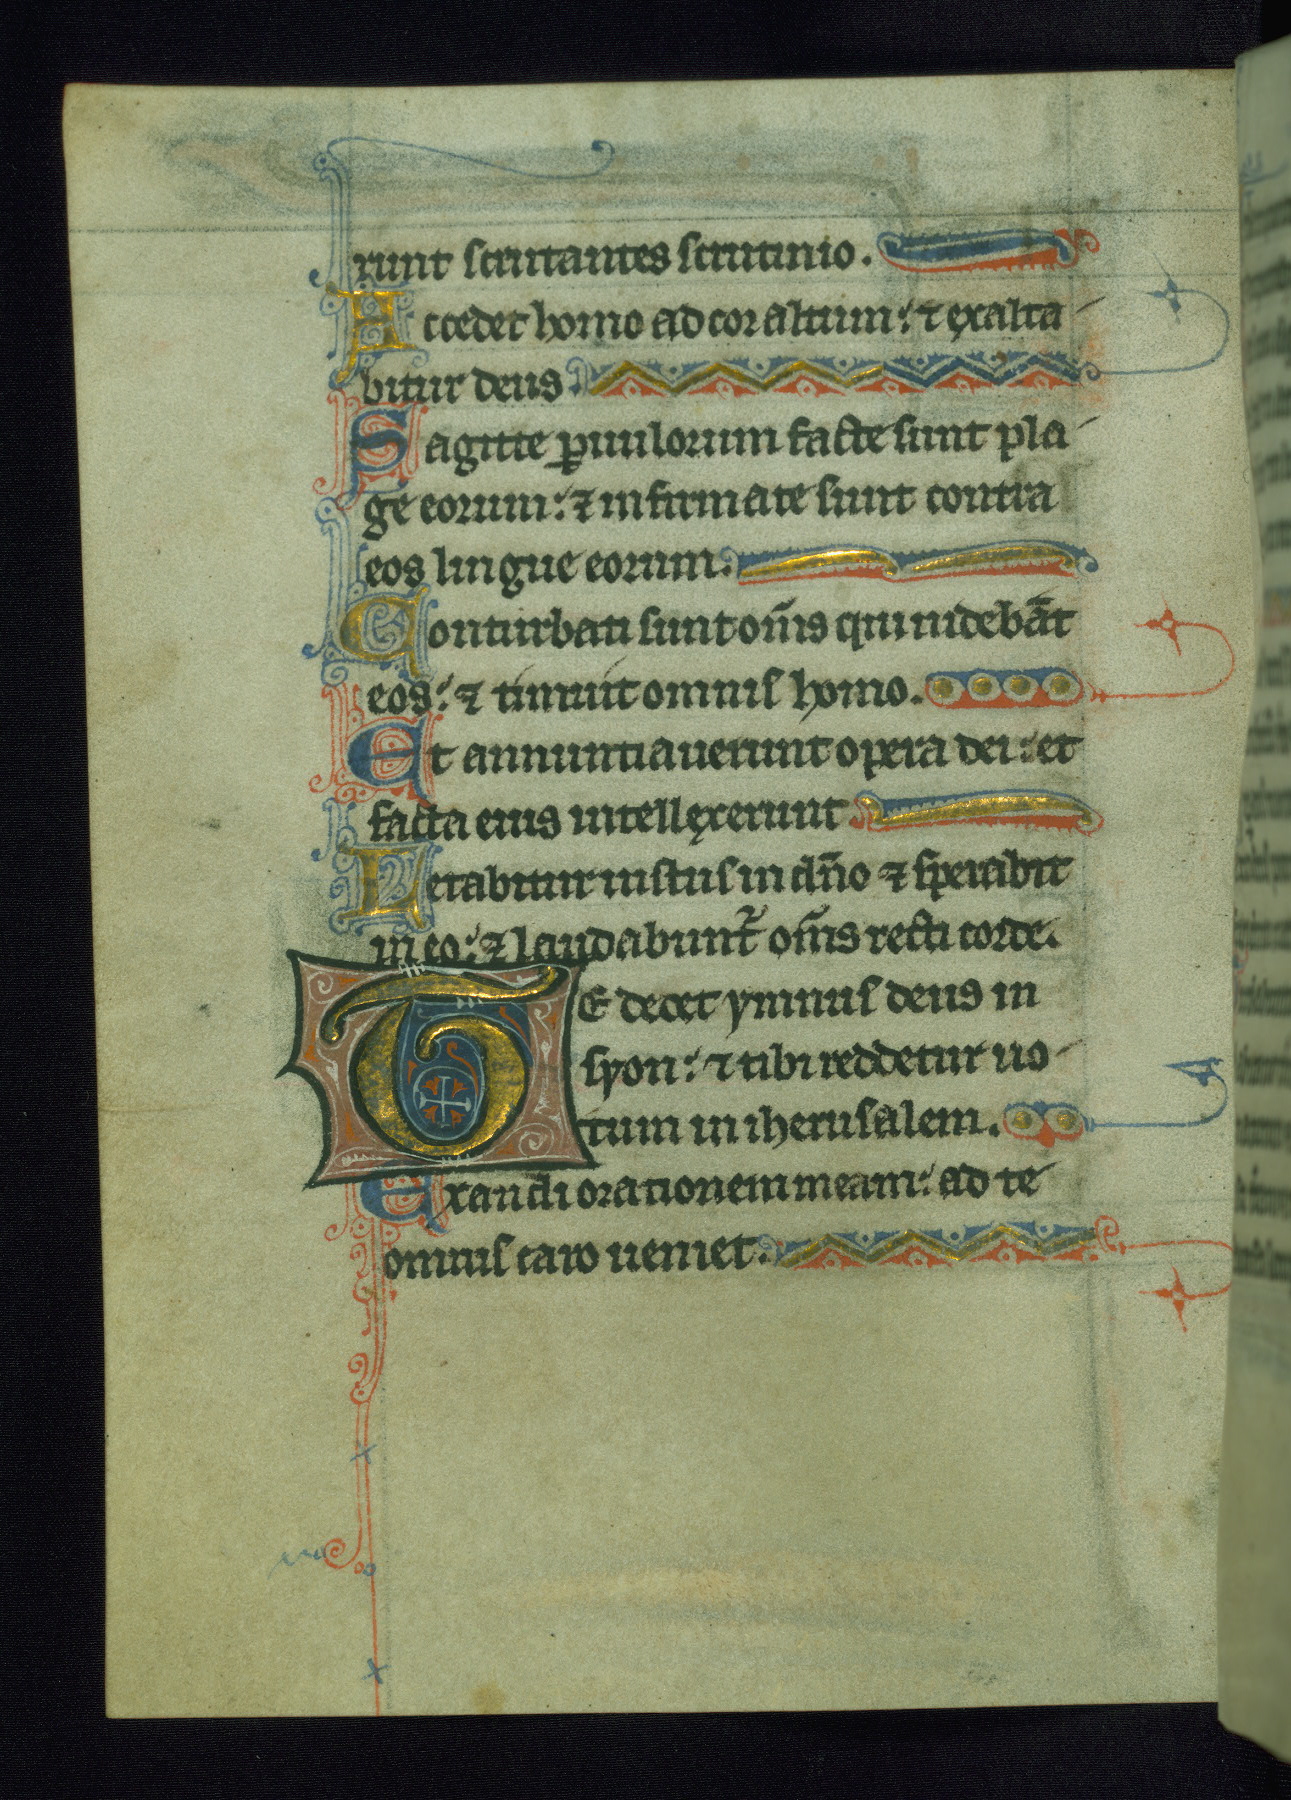 runt scrutantes scrutinio.
Accedet homo ad cor altum: ⁊ exalta
bitur deus.
Sagitte ꝑuulorum facte sunt pla
ge eorum: ⁊ infirmate sunt contra
eos lingue eorum.
Conturbati sunt om̄s qui uidebāt
eos: ⁊ timuit omnis homo.
Et annuntiauerunt opera dei: et
facta eius intellexerunt
Letabitur iustus in dn̄o ⁊ sperabit
in eo: ⁊ laudabunt᷑ om̄s recti corde.
TE decet ymnus deus in
syon: ⁊ tibi reddetur uo
tum in iherusalem.
Exaudi orationem meam: ad te
omnis caro ueniet.